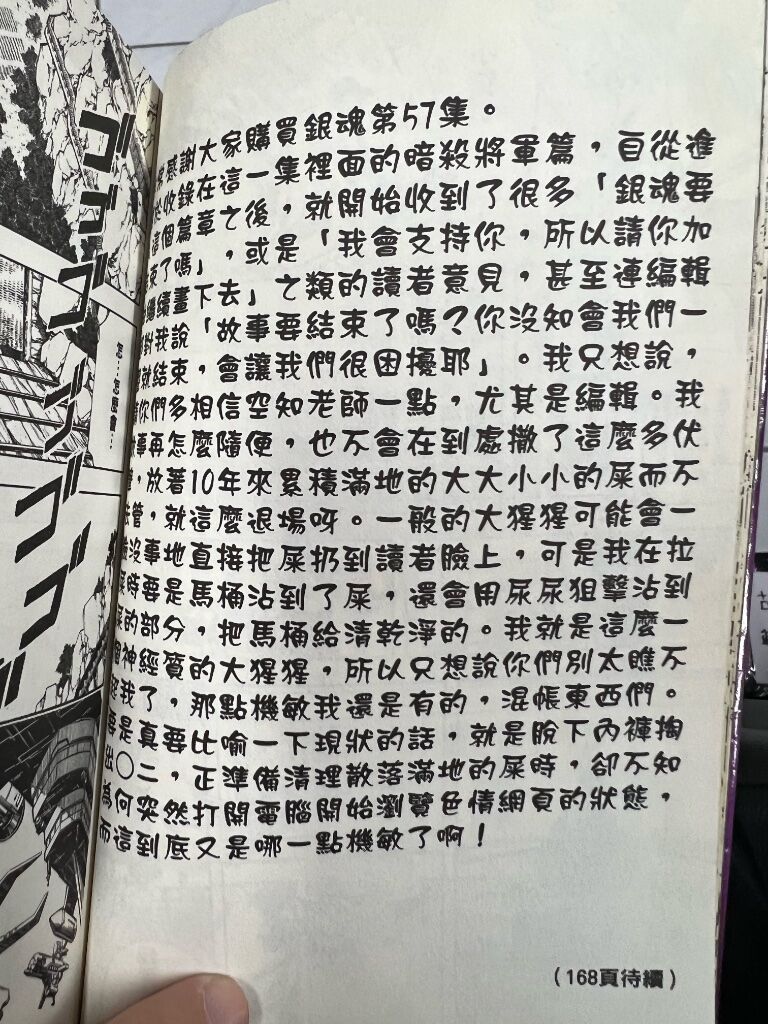 感謝大家購買銀魂第57集。
收錄在這一集裡面的暗殺將軍篇，自從進
這個篇章之後，就開始收到了很多「銀魂要
束了嗎」，或是「我會支持你，所以請你加
繼續畫下去」之類的讀者意見，甚至連編輯
對我說「故事要結束了嗎？你沒知會我們一
就結束，會讓我們很困擾耶」。我只想說，
你們多相信空知老師一點，尤其是編輯。我
事再怎麼隨便，也不會在到處撒了這麼多伏
，放著10年來累積滿地的大大小小的屎而不
去管，就這麼退場呀。一般的大猩猩可能會一
沒事地直接把屎扔到讀者臉上，可是我在拉
時要是馬桶沾到了屎，還會用尿尿狙擊沾到
屎的部分，把馬桶給清乾淨的。我就是這麼一
個神經質的大猩猩，所以只想說你們別太瞧不
起我了，那點機敏我還是有的，混帳東西們。
要是真要比喻一下現狀的話，就是脫下內褲掏
出〇二，正準備清理散落滿地的屎時，卻不知
為何突然打開電腦開始瀏覽色情網頁的狀態，
而這到底又是哪一點機敏了啊！
（168頁待續）
怎…怎麼會…
ゴゴゴゴゴゴ